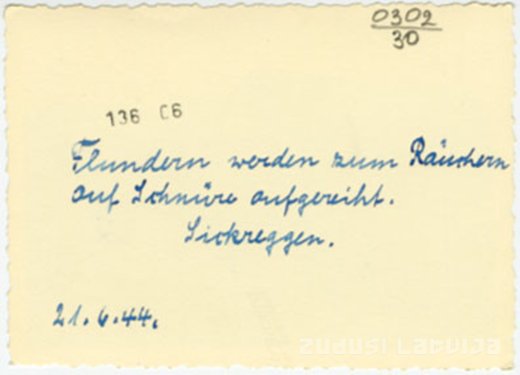 0302
30
136 C6
Flundern werden zum Räuchern
auf Schnüre aufgereiht.
Sickreggen.
21.6.44.
ZUDUSI LATVIJA